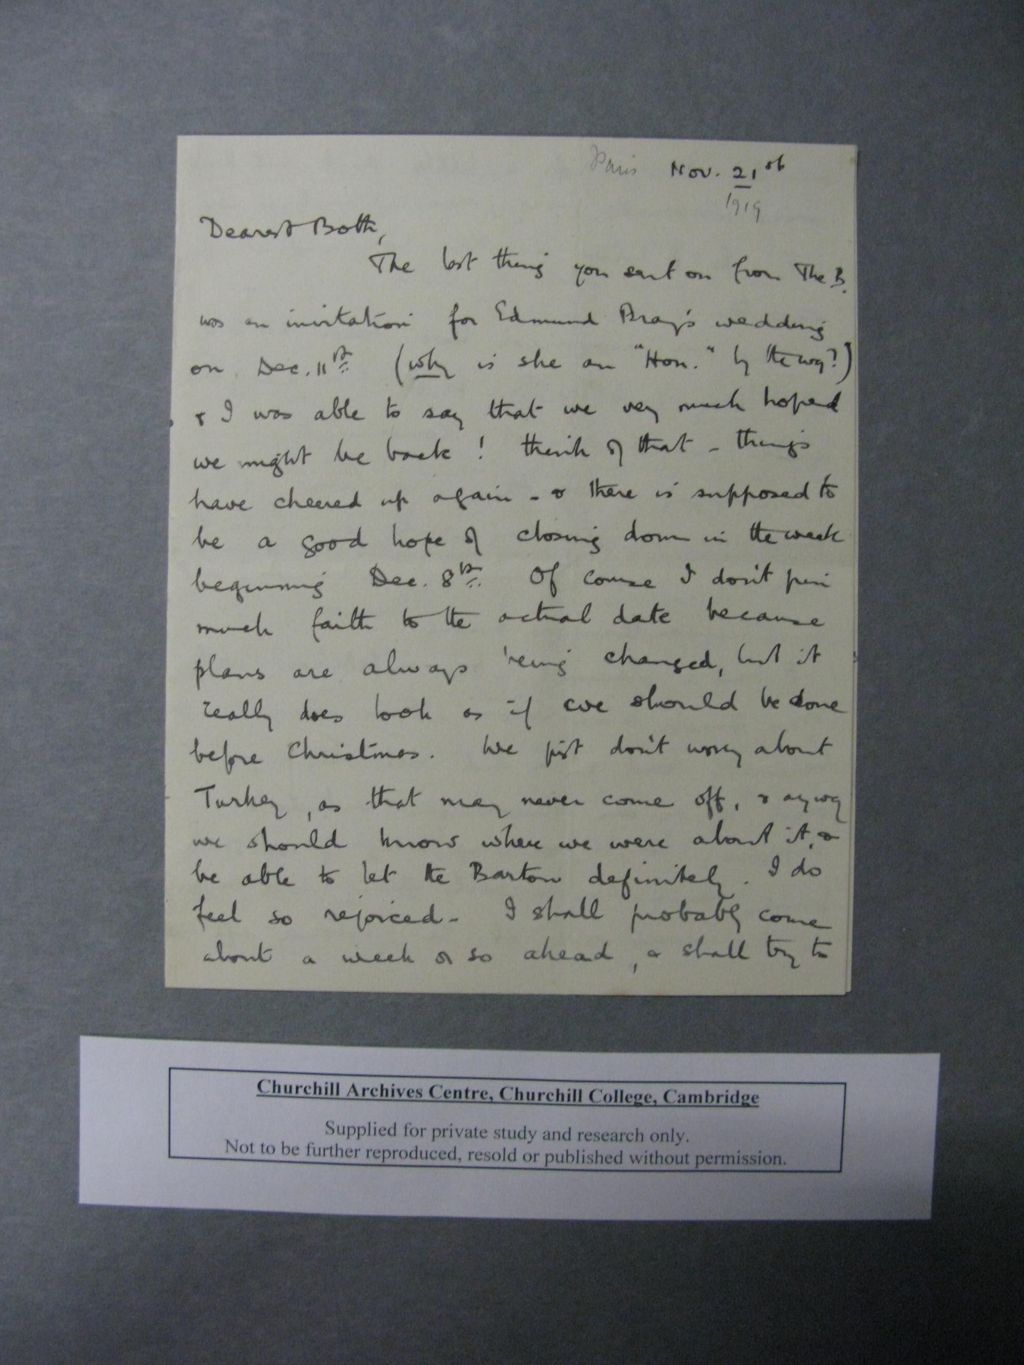 Paris Nov. 21st
1919
Dearest Both,
The last thing you sent on from The B.
was an invitation for Edmund Bray's wedding
on Dec. 11th (why is she an "Hon." by the way?)
& I was able to say that we very much hoped
we might be back! think of that - things
have cheered up again - & there is supposed to
be a good hope of closing down in the week
beginning Dec. 8th. Of course I don't pin
much faith to the actual date because
plans are always being changed, but it
really does look as if we should be done
before Christmas. We just don't worry about
Turkey, as that may never come off, & anyway
we should know where we were about it, &
be able to let the Barton definitely. I do
feel so rejoiced - I shall probably come
about a week or so ahead, & shall try to
Churchill Archives Centre, Churchill College, Cambridge
Supplied for private study and research only.
Not to be further reproduced, resold or published without permission.